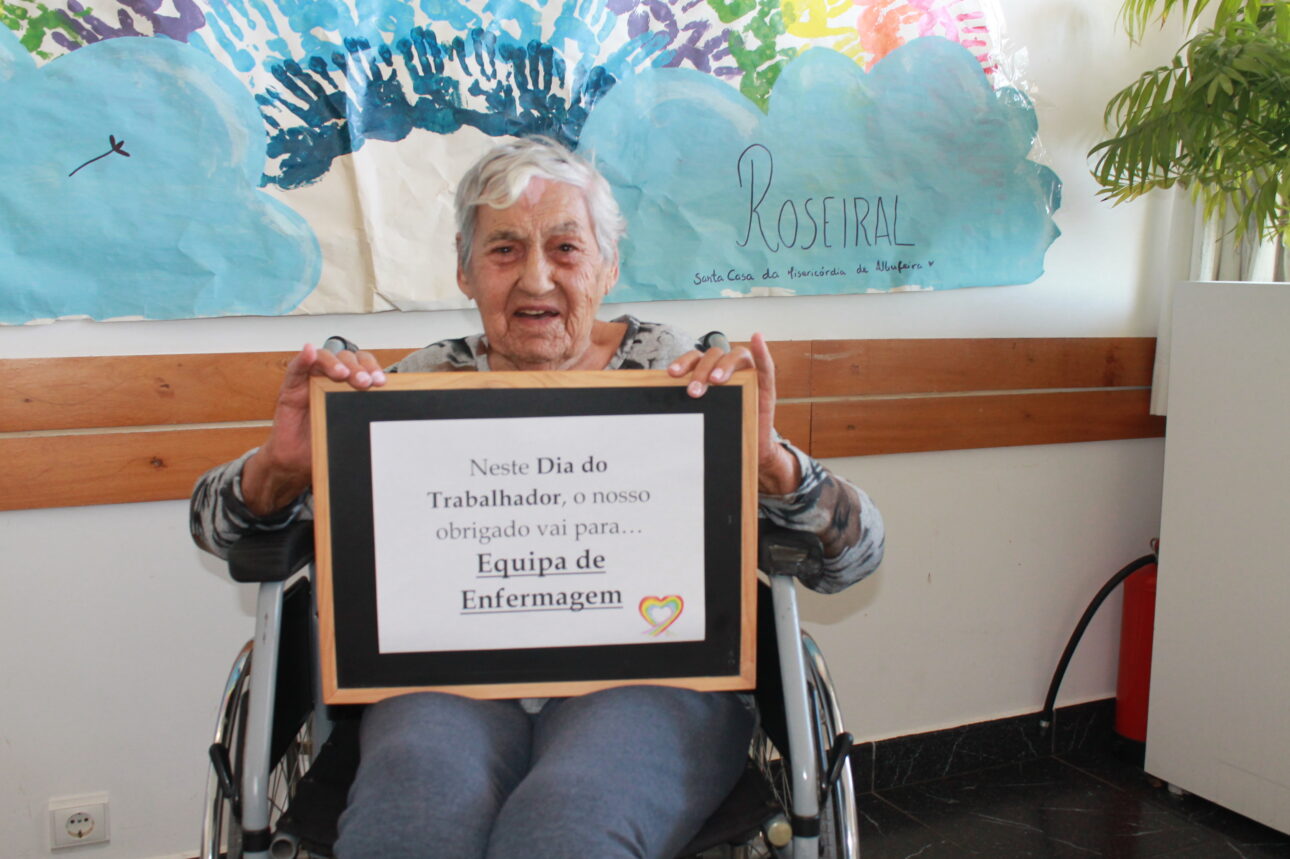 ROSEIRAL
Santa Casa da Misericórdia de Albufeira
Neste Dia do
Trabalhador, o nosso
obrigado vai para...
Equipa de
Enfermagem